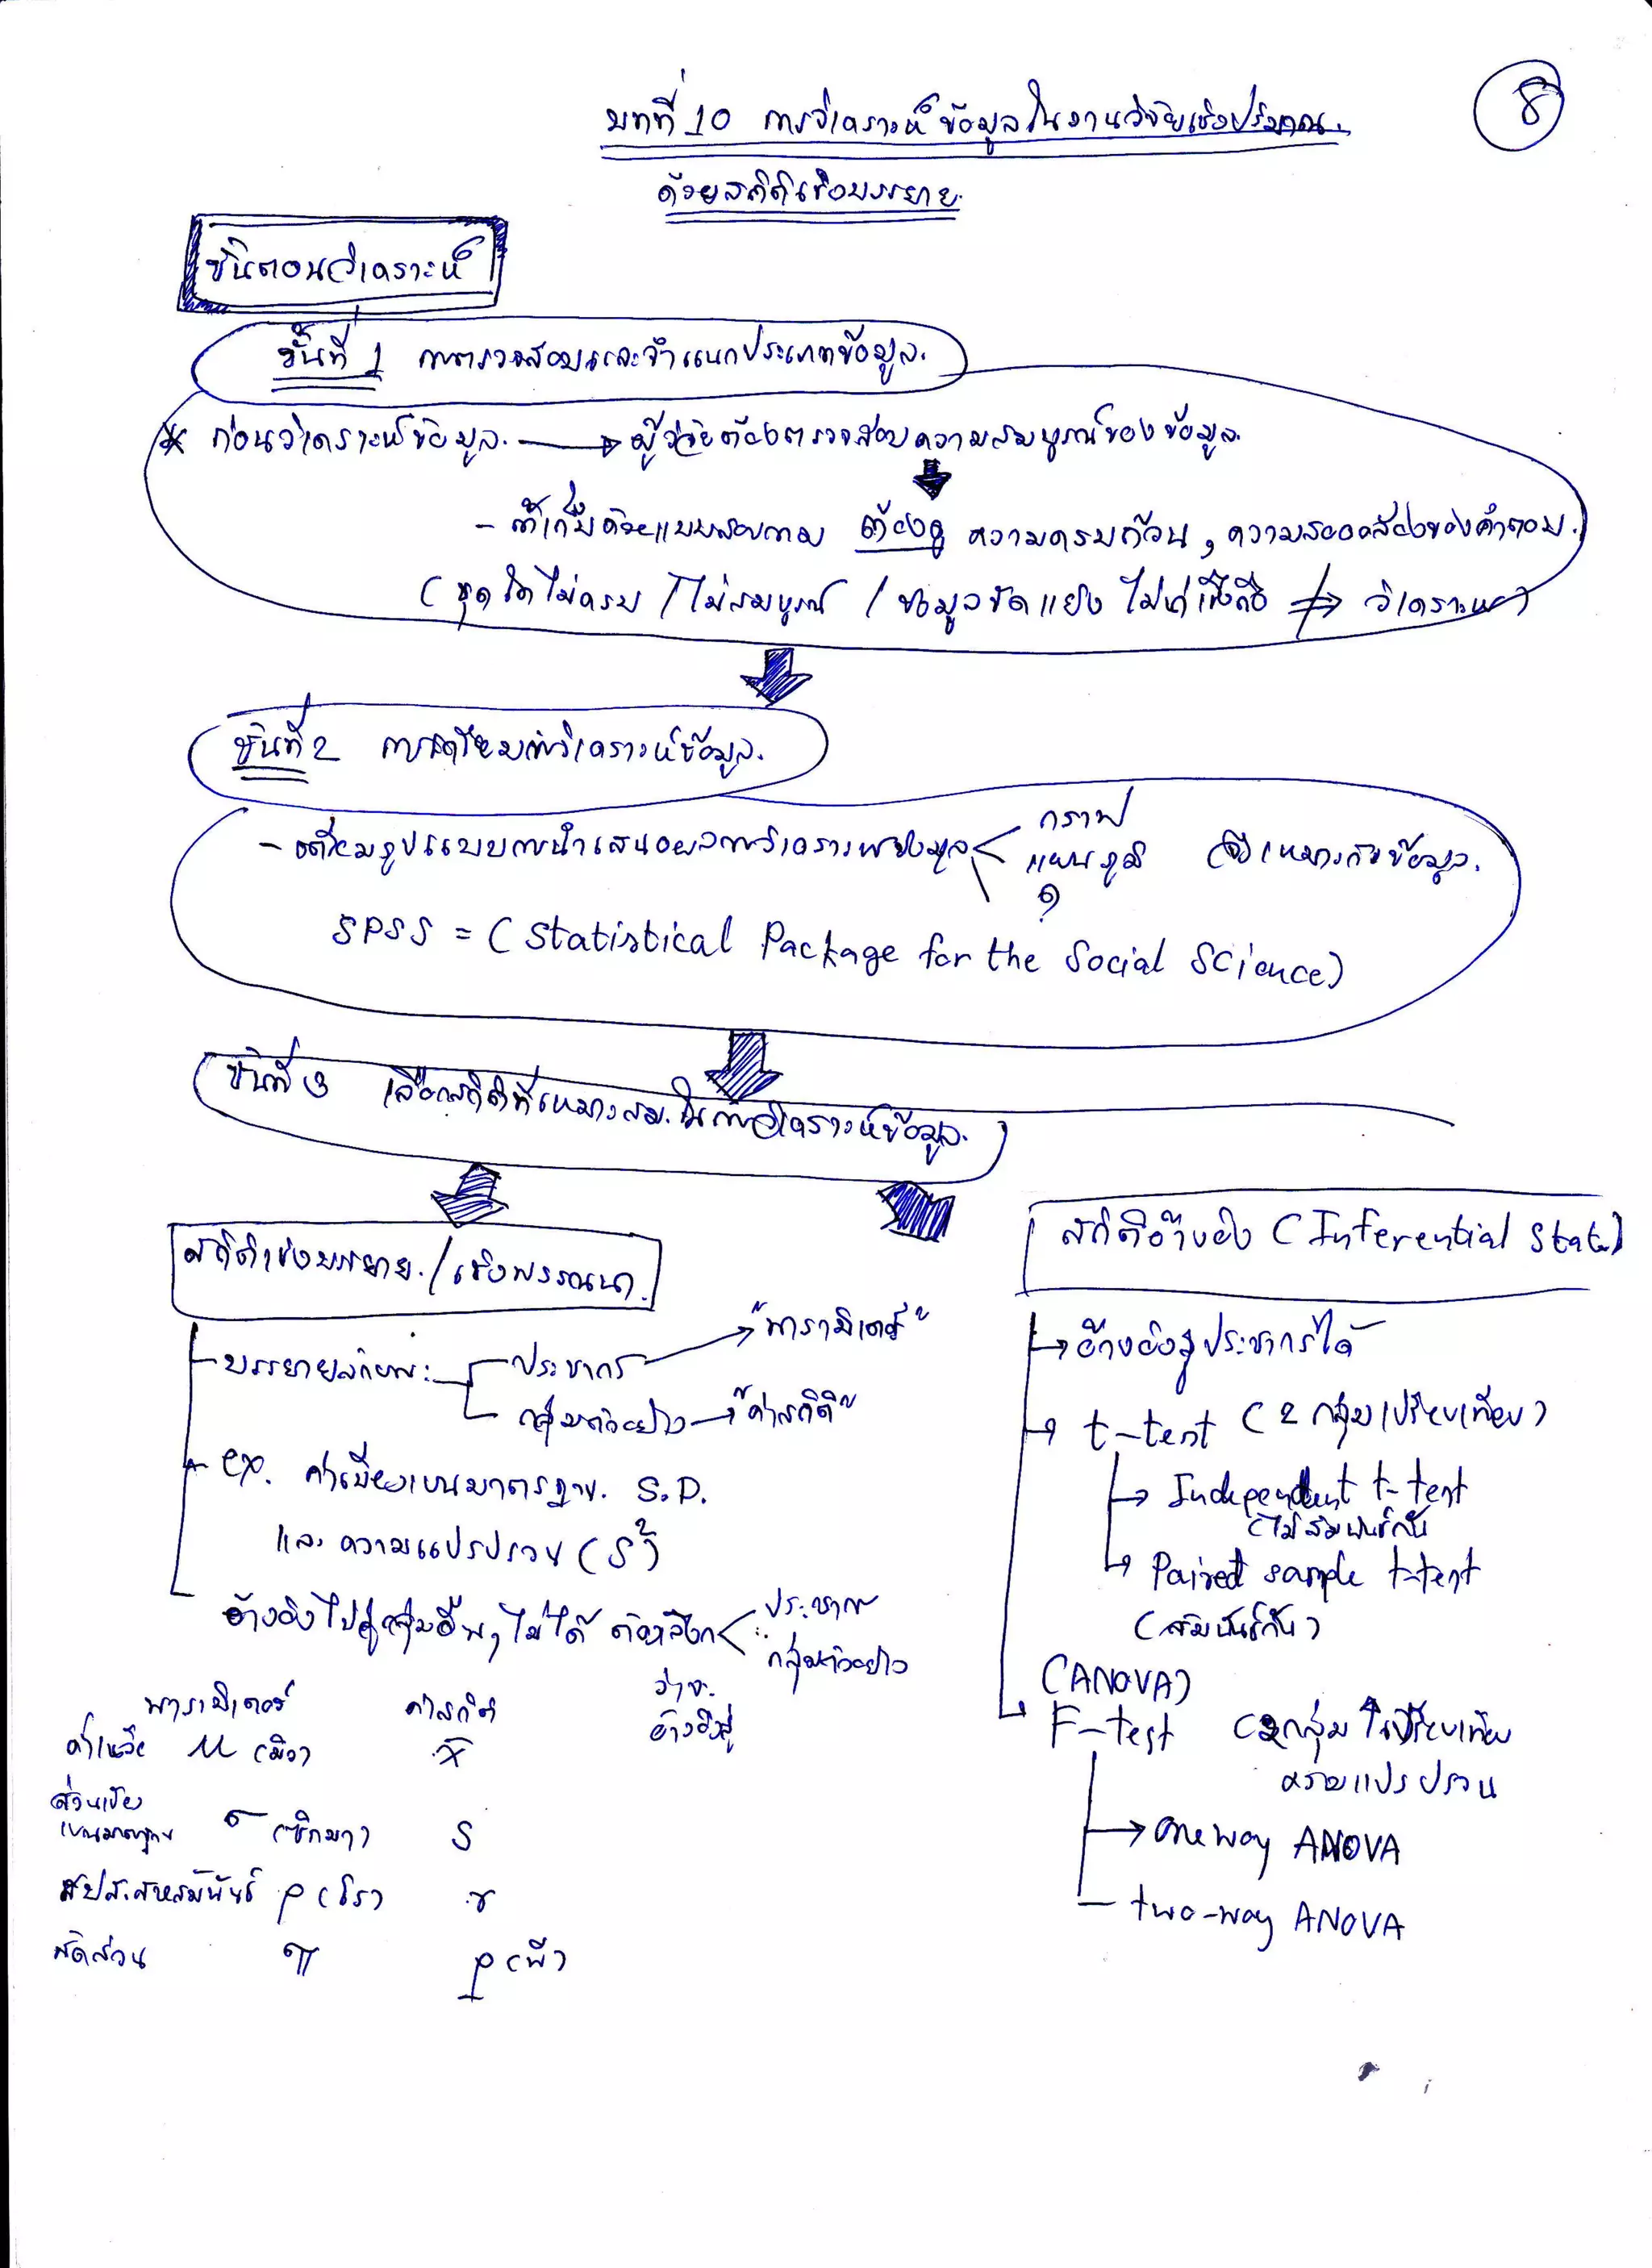 8
บทที่ 10 การวิเคราะห์ข้อมูลในงานวิจัยเชิงปริมาณ.
ด้วยสถิติเชิงบรรยาย.
ขั้นตอนวิเคราะห์
ขั้นที่ 1 การตรวจสอบและจำแนกประเภทข้อมูล.
* ก่อนวิเคราะห์ข้อมูล. → ผู้วิจัยต้องตรวจสอบความสมบูรณ์ของข้อมูล.
- ถ้าเก็บด้วยแบบสอบถาม ต้องดู ความครบถ้วน, ความสอดคล้องของคำตอบ.
(ชุดใดไม่ครบ / ไม่สมบูรณ์ / ข้อมูลขัดแย้ง ไม่น่าเชื่อถือ ⇏ วิเคราะห์)
ขั้นที่ 2 การเตรียมการวิเคราะห์ข้อมูล.
- เตรียมรูปแบบการนำเสนอผลการวิเคราะห์ข้อมูล
กราฟ
แผนภูมิ
ที่เหมาะกับข้อมูล.
SPSS = (Statistical Package for the Social Science)
ขั้นที่ 3 เลือกสถิติที่เหมาะสม.ในการวิเคราะห์ข้อมูล.
สถิติเชิงบรรยาย. / เชิงพรรณนา.
บรรยายลักษณะ:
ประชากร → "พารามิเตอร์"
กลุ่มตัวอย่าง → "ค่าสถิติ"
ex. ค่าเบี่ยงเบนมาตรฐาน. S.D.
และ ความแปรปรวน (S²)
อ้างอิงไปสู่กลุ่มอื่นๆ ไม่ได้
ประชากร
กลุ่มตัวอย่าง
พารามิเตอร์ ค่าสถิติ
อ้างอิงสู่
ค่าเฉลี่ย μ (มิว) x̄
ส่วนเบี่ยง
เบนมาตรฐาน σ (ซิกมา) S
สปส.สหสัมพันธ์ ρ (โร) r
สัดส่วน π p (พี)
สถิติอ้างอิง (Inferential Stat.)
→ อ้างอิงสู่ประชากรได้
→ t-test (2 กลุ่มเปรียบเทียบ)
→ Independent t-test
(ไม่สัมพันธ์กัน)
→ Paired sample t-test
(สัมพันธ์กัน)
(ANOVA)
→ F-test (2กลุ่ม ↑ เปรียบเทียบ
ความแปรปรวน
→ one way ANOVA
- two-way ANOVA